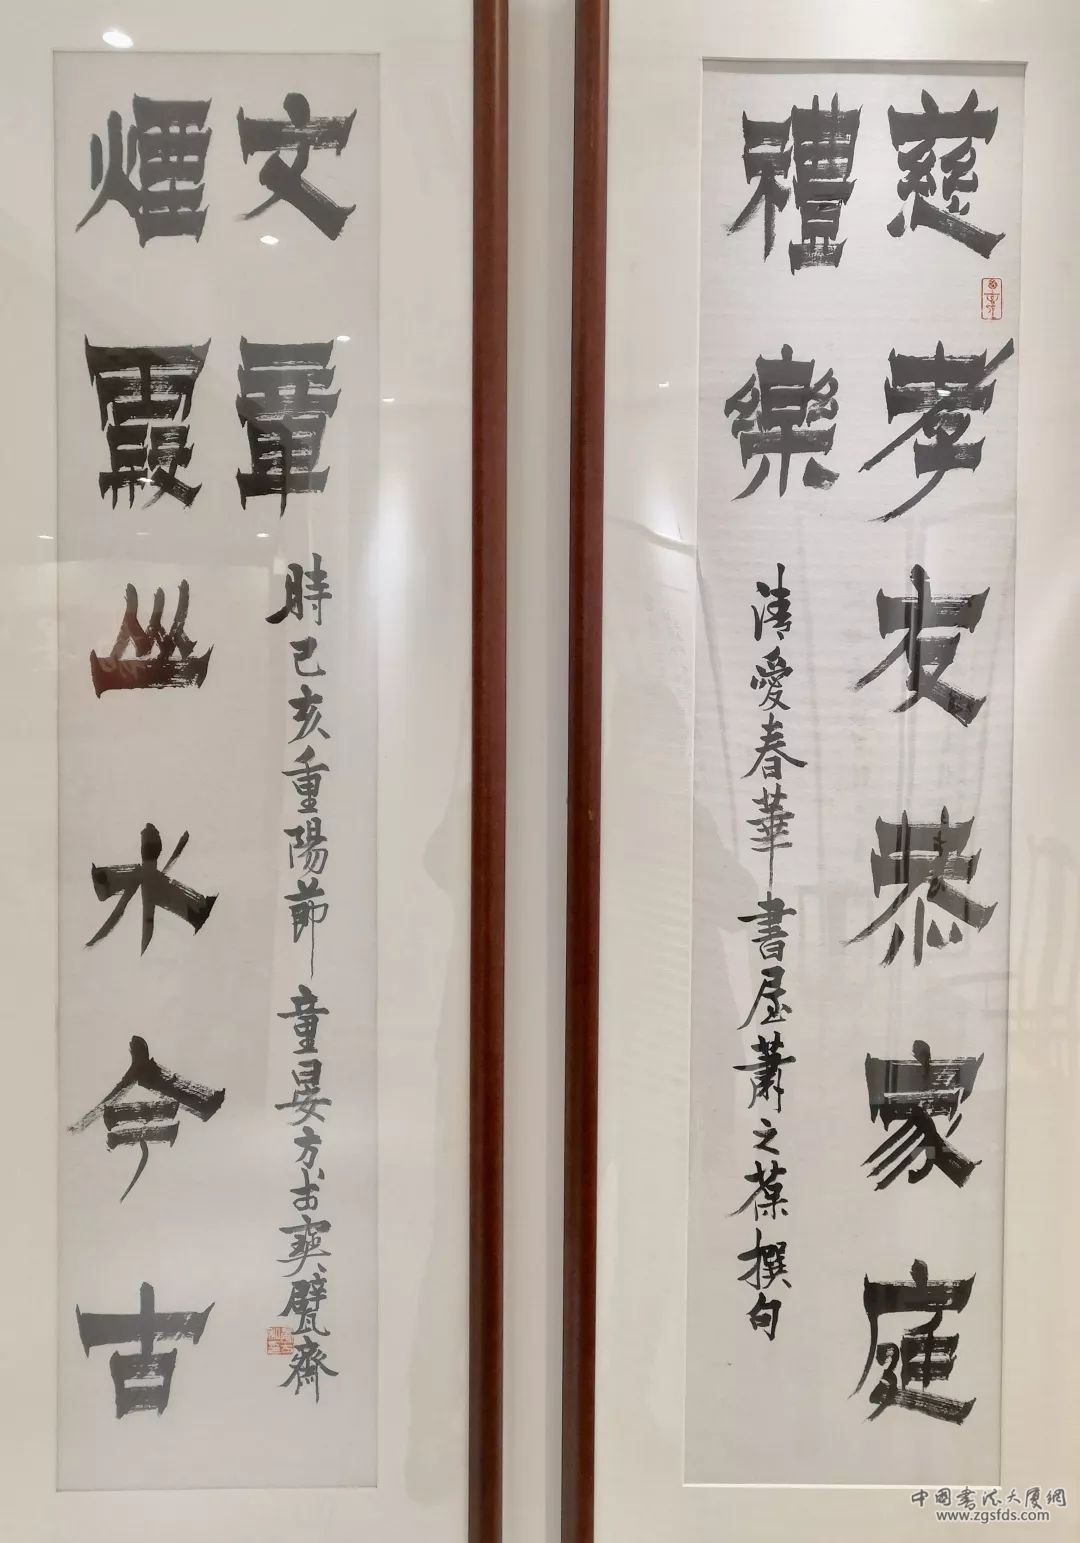 慈孝友恭家庭
禮樂
清愛春華書屋蕭之葆撰句
煙霞山水今古
文章
時己亥重陽節童晏方書寶甓齋
中國書法大廈網
www.zgsfds.com